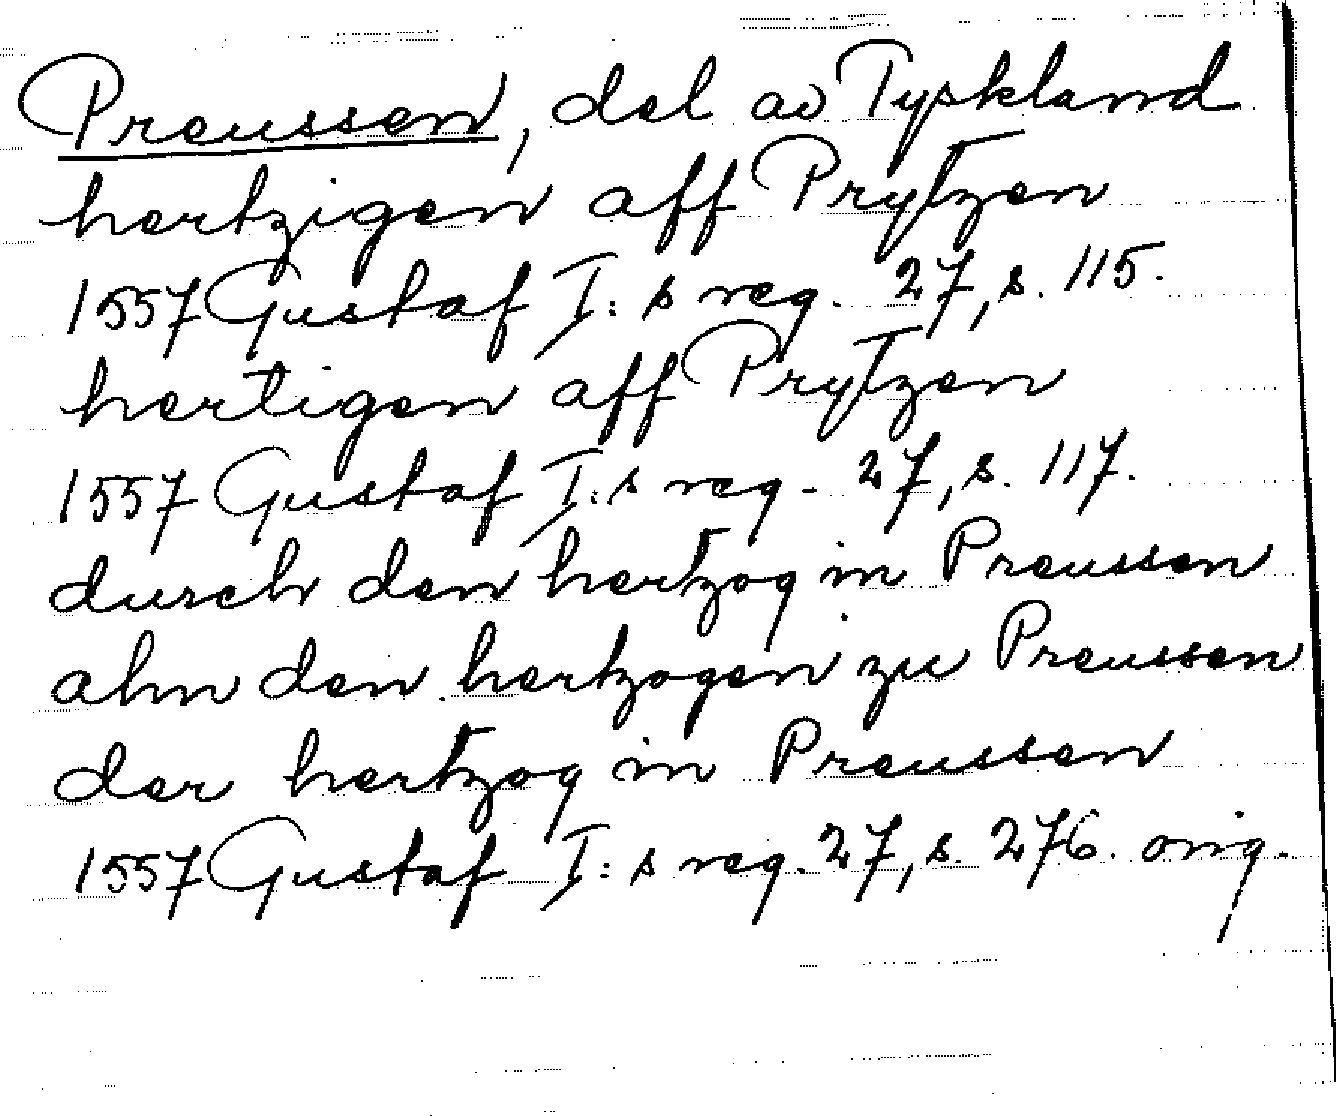 Preussen, del av Tyskland
hertzigen aff Prytzen
1557 Gustaf I:s reg. 27, s. 115.
hertigen aff Prytzen
1557 Gustaf I:s reg. 27, s. 117.
durch den hertzog in Preussen
ahn den hertzogen zu Preussen
der hertzog in Preussen
1557 Gustaf I:s reg. 27, s. 276. orig.